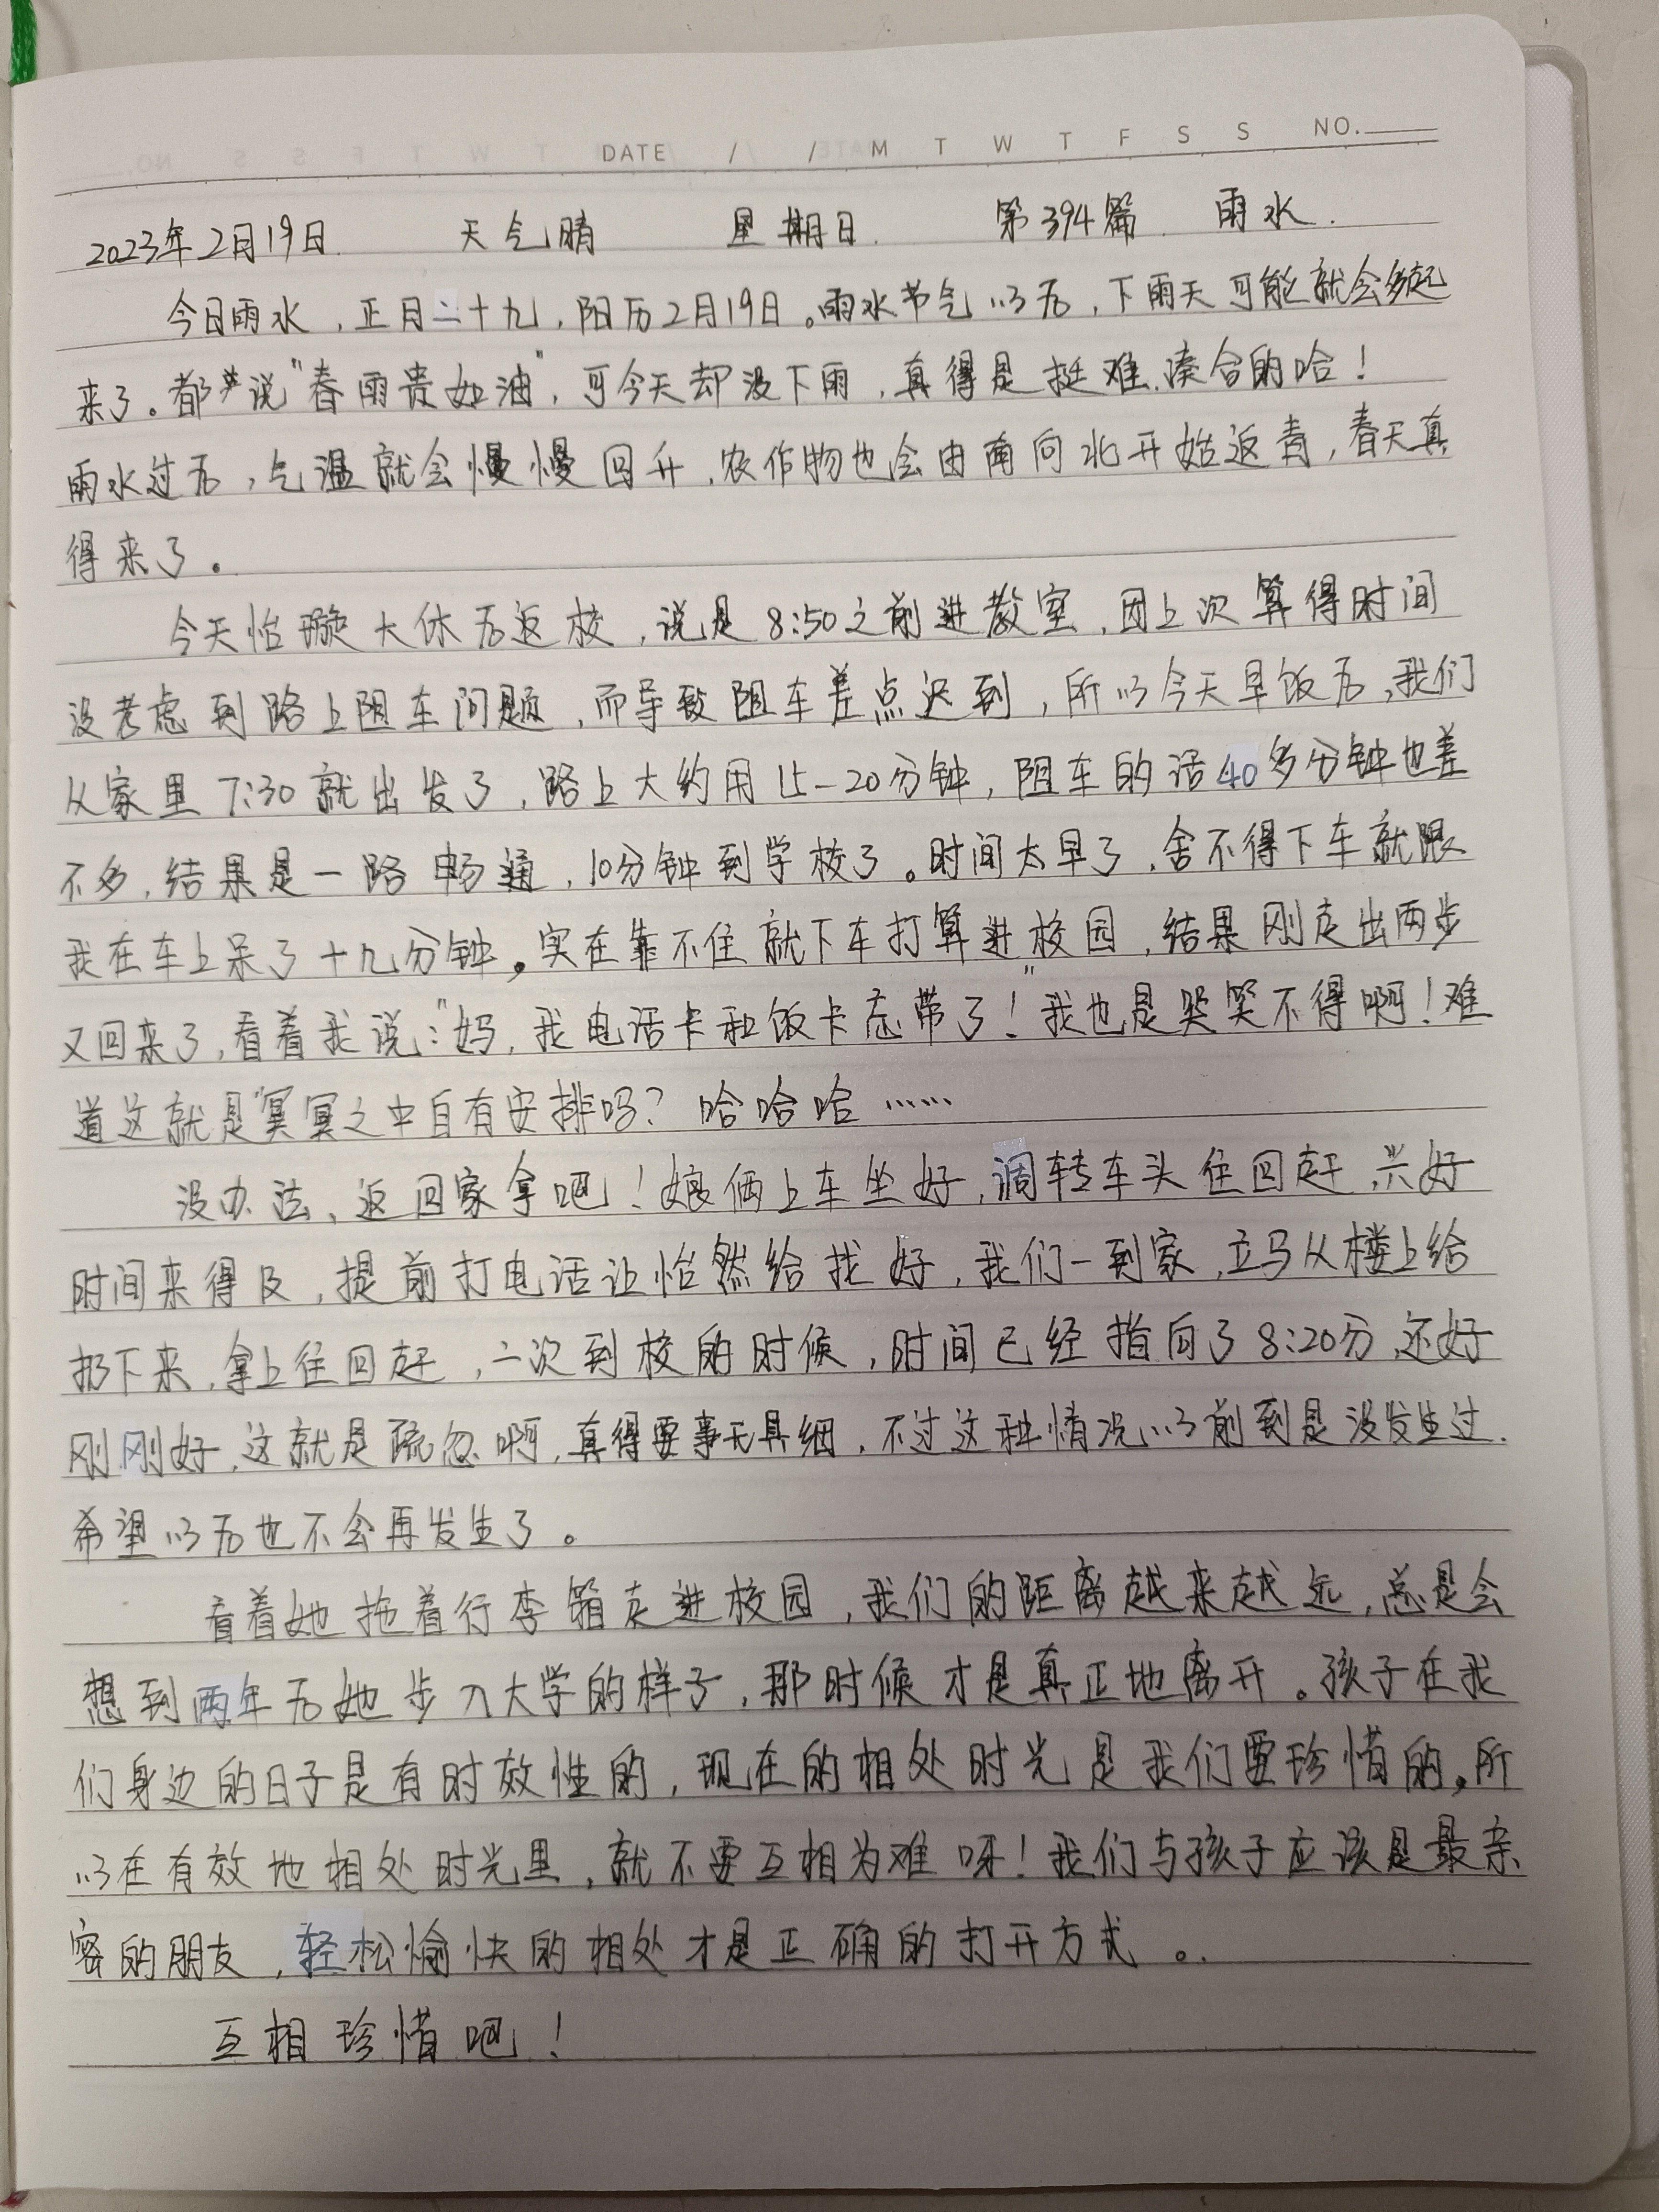 DATE / / M T W T F S S NO.
2023年2月19日 天气晴 星期日. 第394篇 雨水.
今日雨水，正月二十九，阳历2月19日。雨水节气以后，下雨天可能就会多起
来了。都说"春雨贵如油"，可今天却没下雨，真得是挺难凑合的哈！
雨水过后，气温就会慢慢回升，农作物也会由南向北开始返青，春天真
得来了。
今天怡璇大休后返校，说是8:50之前进教室，因上次算得时间
没考虑到路上阻车问题，而导致阻车差点迟到，所以今天早饭后，我们
从家里7:30就出发了，路上大约用15-20分钟，阻车的话40多分钟也差
不多，结果是一路畅通，10分钟到学校了。时间太早了，舍不得下车就跟
我在车上呆了十几分钟。实在靠不住就下车打算进校园，结果刚走出两步
又回来了，看着我说："妈，我电话卡和饭卡忘带了！"我也是哭笑不得啊！难
道这就是"冥冥之中自有安排吗？哈哈哈……
没办法、返回家拿吧！娘俩上车坐好，调转车头往回赶，兴好
时间来得及，提前打电话让怡然给找好，我们一到家，立马从楼上给
扔下来，拿上往回赶，二次到校的时候，时间已经指向了8:20分，还好
刚刚好，这就是疏忽啊，真得要事无具细，不过这种情况以前到是没发生过.
希望以后也不会再发生了。
看着她拖着行李箱走进校园，我们的距离越来越远，总是会
想到两年后她步入大学的样子，那时候才是真正地离开。孩子在我
们身边的日子是有时效性的，现在的相处时光是我们要珍惜的。所
以在有效地相处时光里，就不要互相为难呀！我们与孩子应该是最亲
密的朋友，轻松愉快的相处才是正确的打开方式。
互相珍惜吧！